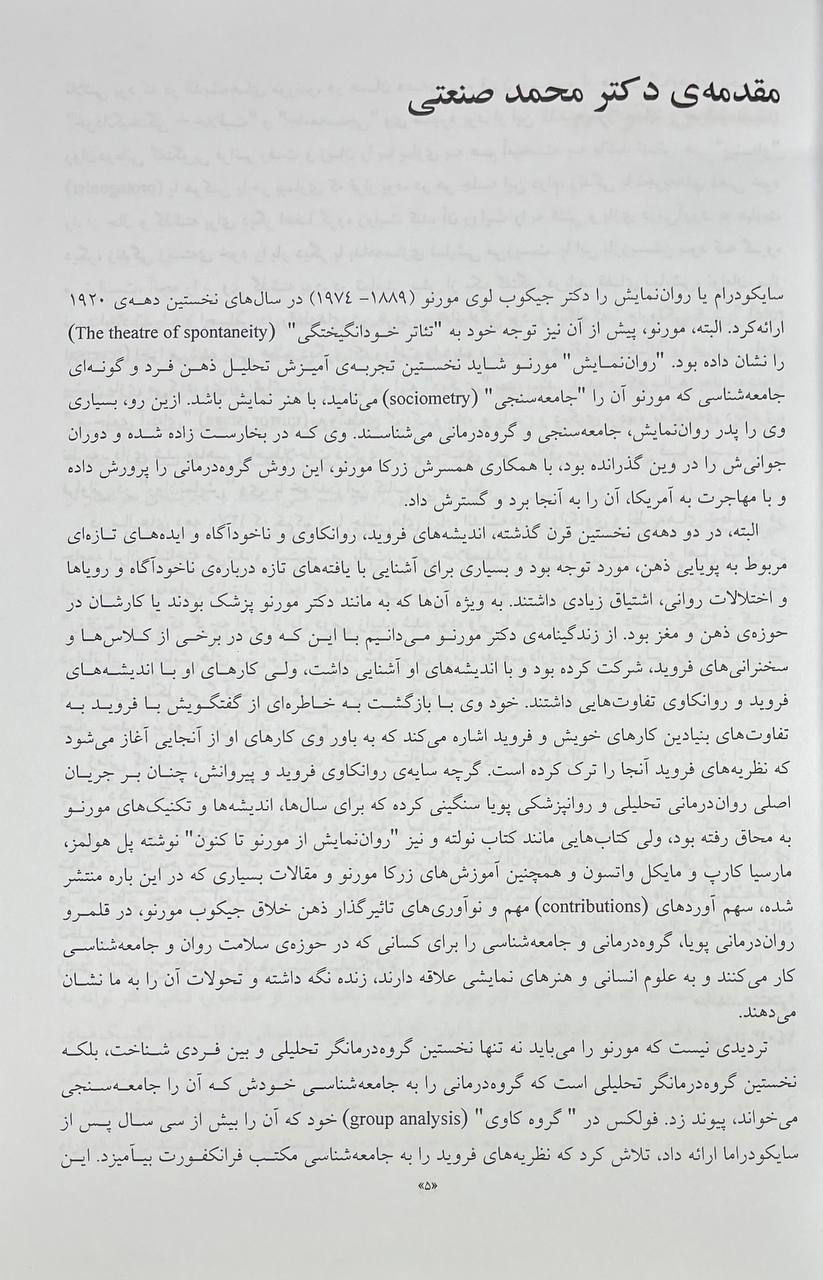 مقدمه‌ی دکتر محمد صنعتی
سایکودرام یا روان‌نمایش را دکتر جیکوب لوی مورنو (۱۸۸۹- ۱۹۷٤) در سال‌های نخستین دهه‌ی ۱۹۲۰
ارائه‌کرد. البته، مورنو، پیش از آن نیز توجه خود به "تئاتر خودانگیختگی" (The theatre of spontaneity)
را نشان داده بود. "روان‌نمایش" مورنو شاید نخستین تجربه‌ی آمیزش تحلیل ذهن فرد و گونه‌ای
جامعه‌شناسی که مورنو آن را "جامعه‌سنجی" (sociometry) می‌نامید، با هنر نمایش باشد. ازین رو، بسیاری
وی را پدر روان‌نمایش، جامعه‌سنجی و گروه‌درمانی می‌شناسند. وی که در بخارست زاده شده و دوران
جوانی‌ش را در وین گذرانده بود، با همکاری همسرش زرکا مورنو، این روش گروه‌درمانی را پرورش داده
و با مهاجرت به آمریکا، آن را به آنجا برد و گسترش داد.
البته، در دو دهه‌ی نخستین قرن گذشته، اندیشه‌های فروید، روانکاوی و ناخودآگاه و ایده‌های تازه‌ای
مربوط به پویایی ذهن، مورد توجه بود و بسیاری برای آشنایی با یافته‌های تازه درباره‌ی ناخودآگاه و رویاها
و اختلالات روانی، اشتیاق زیادی داشتند. به ویژه آن‌ها که به مانند دکتر مورنو پزشک بودند یا کارشان در
حوزه‌ی ذهن و مغز بود. از زندگینامه‌ی دکتر مورنو می‌دانیم با این که وی در برخی از کلاس‌ها و
سخنرانی‌های فروید، شرکت کرده بود و با اندیشه‌های او آشنایی داشت، ولی کارهای او با اندیشه‌های
فروید و روانکاوی تفاوت‌هایی داشتند. خود وی با بازگشت به خاطره‌ای از گفتگویش با فروید به
تفاوت‌های بنیادین کارهای خویش و فروید اشاره می‌کند که به باور وی کارهای او از آنجایی آغاز می‌شود
که نظریه‌های فروید آنجا را ترک کرده است. گرچه سایه‌ی روانکاوی فروید و پیروانش، چنان بر جریان
اصلی روان‌درمانی تحلیلی و روانپزشکی پویا سنگینی کرده که برای سال‌ها، اندیشه‌ها و تکنیک‌های مورنو
به محاق رفته بود، ولی کتاب‌هایی مانند کتاب نولته و نیز "روان‌نمایش از مورنو تا کنون" نوشته پل هولمز،
مارسیا کارپ و مایکل واتسون و همچنین آموزش‌های زرکا مورنو و مقالات بسیاری که در این باره منتشر
شده، سهم آوردهای (contributions) مهم و نوآوری‌های تاثیرگذار ذهن خلاق جیکوب مورنو، در قلمرو
روان‌درمانی پویا، گروه‌درمانی و جامعه‌شناسی را برای کسانی که در حوزه‌ی سلامت روان و جامعه‌شناسی
کار می‌کنند و به علوم انسانی و هنرهای نمایشی علاقه دارند، زنده نگه داشته و تحولات آن را به ما نشان
می‌دهند.
تردیدی نیست که مورنو را می‌باید نه تنها نخستین گروه‌درمانگر تحلیلی و بین فردی شناخت، بلکه
نخستین گروه‌درمانگر تحلیلی است که گروه‌درمانی را به جامعه‌شناسی خودش که آن را جامعه‌سنجی
می‌خواند، پیوند زد. فولکس در " گروه کاوی" (group analysis) خود که آن را بیش از سی سال پس از
سایکودراما ارائه داد، تلاش کرد که نظریه‌های فروید را به جامعه‌شناسی مکتب فرانکفورت بیامیزد. این
«۵»